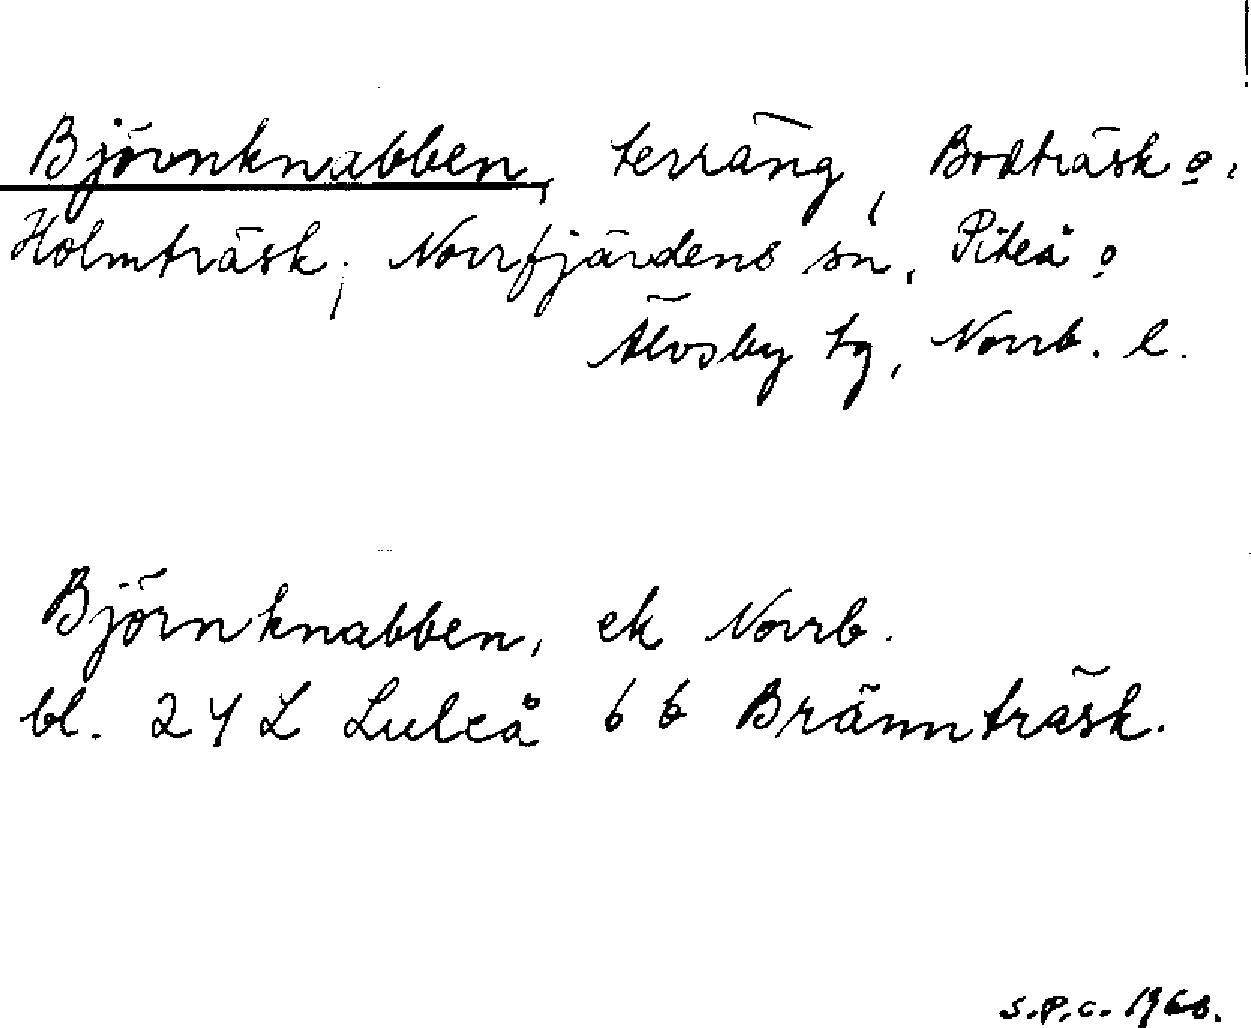 Björnknabben, terräng, Bodträsk o.
Holmträsk, Norrfjärdens sn, Piteå o
Älvsby tg, Norrb. l.
Björnknabben, ek Norrb.
bl. 24 L Luleå 6 b Brännträsk.
S.P.C. 1968.